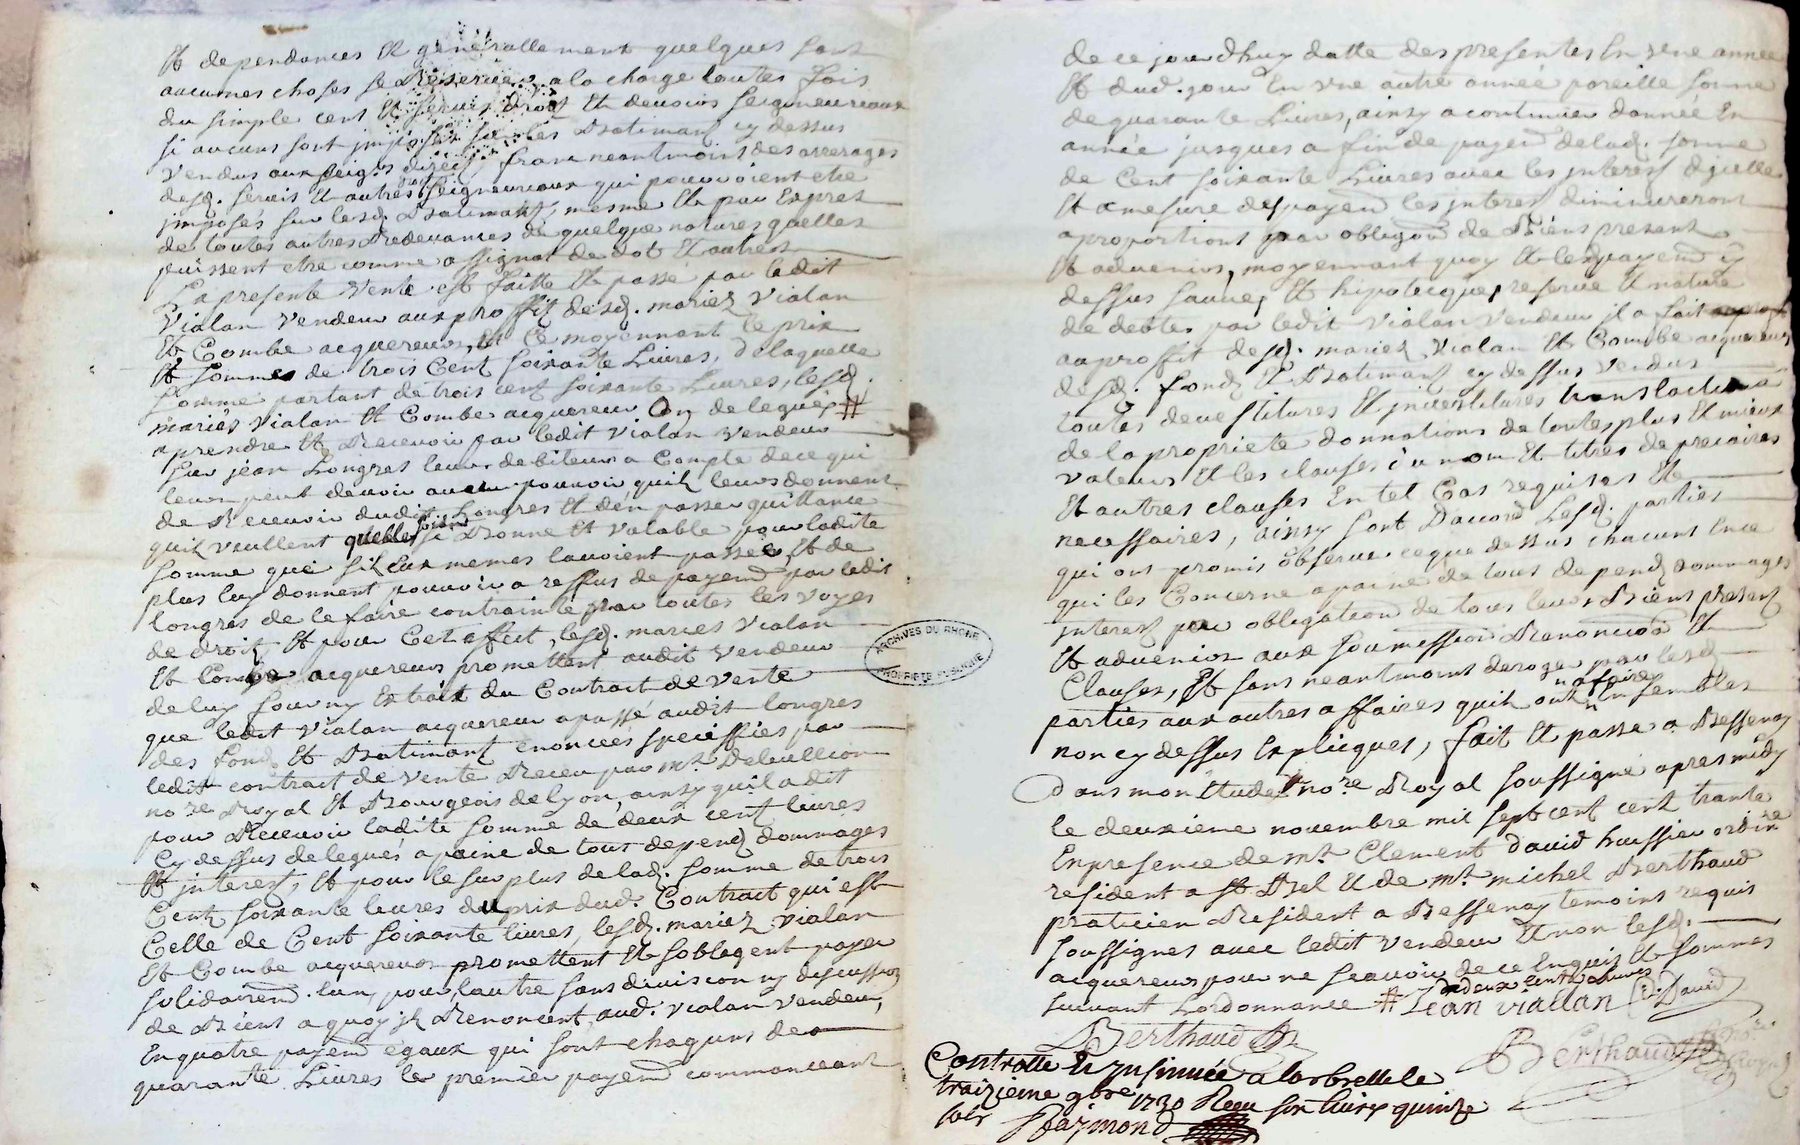 Et dependances Et generallement quelques sont
aucunes choses se Reserver a la charge toutes fois
du simple cent Et servis droit Et devoirs seigneuriaux
si aucuns sont jmposés sur les Batimant cy dessus
vendus aux seigrs directs, franc neantmoins des arrerages
desd. servis Et autres droits seigneuriaux qui pouvoient etre
jmposés sur lesd. Batimants, mesme Et par Expres
de toutes autres Redevances de quelque natures quelles
puissent etre comme assignat de dot Et autres
La presente Vente est faitte Et passé par ledit
Vialan Vendeur aux proffit desd. mariez Vialan
Et Combe acquereurs, et Ce moyennant le prix
Et somme de trois Cent soixante Livres, delaquelle
somme partant de trois cent soixante Livres, lesd.
mariés Vialan Et Combe acquereur Ont delegués #
a prendre Et Recevoir par ledit Vialan Vendeur
sur jean Longres leur debiteur a Compte de ce qui
leurs peut devoir avec pouvoir quil leurs donnent
de Recevoir dudit Longres Et d'en passer quittance
quil veullent quelle soit si Bonne Et valable pour ladite
somme que sil Eux memes lavoient passée, Et de
plus luy donnent pouvoir a reffus de payemt par ledit
longres de le faire contrainte par toutes les voyes
de droit, Et pour Cet effect, lesd. mariés Vialan
Et Combe acquereurs promettent audit Vendeur
de luy fournÿ Extrait du Contrait de Vente
que ledit Vialan acquereur a passé audit longres
des fond Et Batimant enoncées speciffiés par
ledit contrait de Vente Receu par mr Deleullion
nore Royal Et Bourgeois de lyon, ainsy quil a dit
pour Recevoir ladite somme de deux cent livres
Cy dessus delegués a paine de tous depend dommages
Et jnterest, Et pour le surplus de lad. somme de trois
Cent soixante livres du prix dud. Contrait qui est
Celle de Cent soixante livres, lesd. mariez Vialan
Et Combe acquereur promettent Et soblogent payer
solidairemt. lun, pour lautre sans division ny discussion
de Biens a quoy jls Renoncent, aud. Vialan Vendeur,
En quatre payemt egaux qui sont chaquns de
quarante Livres le premier payemt commanceant
de ce jourdhuy datte des presentes En vne année
Et dud. jour En vne autre année pareille somme
de quarante Livres, ainsy a continuer dannée En
année jusques a fin de payemt de lad. somme
de Cent soixante Livres avec les jnterest djcelle
Et a mesure des payemt les jnterest diminueront
a proportions par obligaon de Biens presents
Et advenirs, moyennant quoy Et lesd payemt cy
dessus sauve, Et hipotecque, reserve Et nature
de debtes par ledit Vialan Vendeur jl a fait
au proffit desd. mariez Vialan Et Combe acquereurs
desd. fond Et Batimant cy dessus vendus
toutes devestitures Et jnvestitures translation
de la proprieté donnations de toutes plus Et mieux
valeurs Et les clauses du nom Et titres de precaires
Et autres clauses En tel Cas requises Et
necessaires, ainsy sont Daccord Lesd. parties
qui ont promis observer ce que dessus chacuns En ce
qui les Concerne a paine de tous depend dommages
jnterest par obligation de tous leurs Biens present
Et advenir aux soumission Renoncion Et
Clauses, Et sans neantmoins deroger par lesd.
parties aux autres affaires quils ont a faire Ensembles
non cy dessus Explicques, fait Et passé a Bessenay
Dans mon Etude nore Royal soussigné apres midy
le deuxieme novembre mil sept cent cent trante
En presence de mr Clement david huissier ordinre
resident a St Bel Et de mr michel Berthaud
praticien Resident a Bessenay temoins requis
soussignes avec ledit Vendeur Et non lesd.
acquereurs pour ne scavoir de ce Enquis Et sommes
suivant Lordonnance # de deux cents livres
Jean viallan C. David
Berthaud
Berthaud nore Royal
Controllé Et Jnsinuée a larbrelle le
traizieme 9bre 1730 Receu six livres quinze
sols Raÿmond
ARCHIVES DU RHONE
PROPRIETE PUBLIQUE